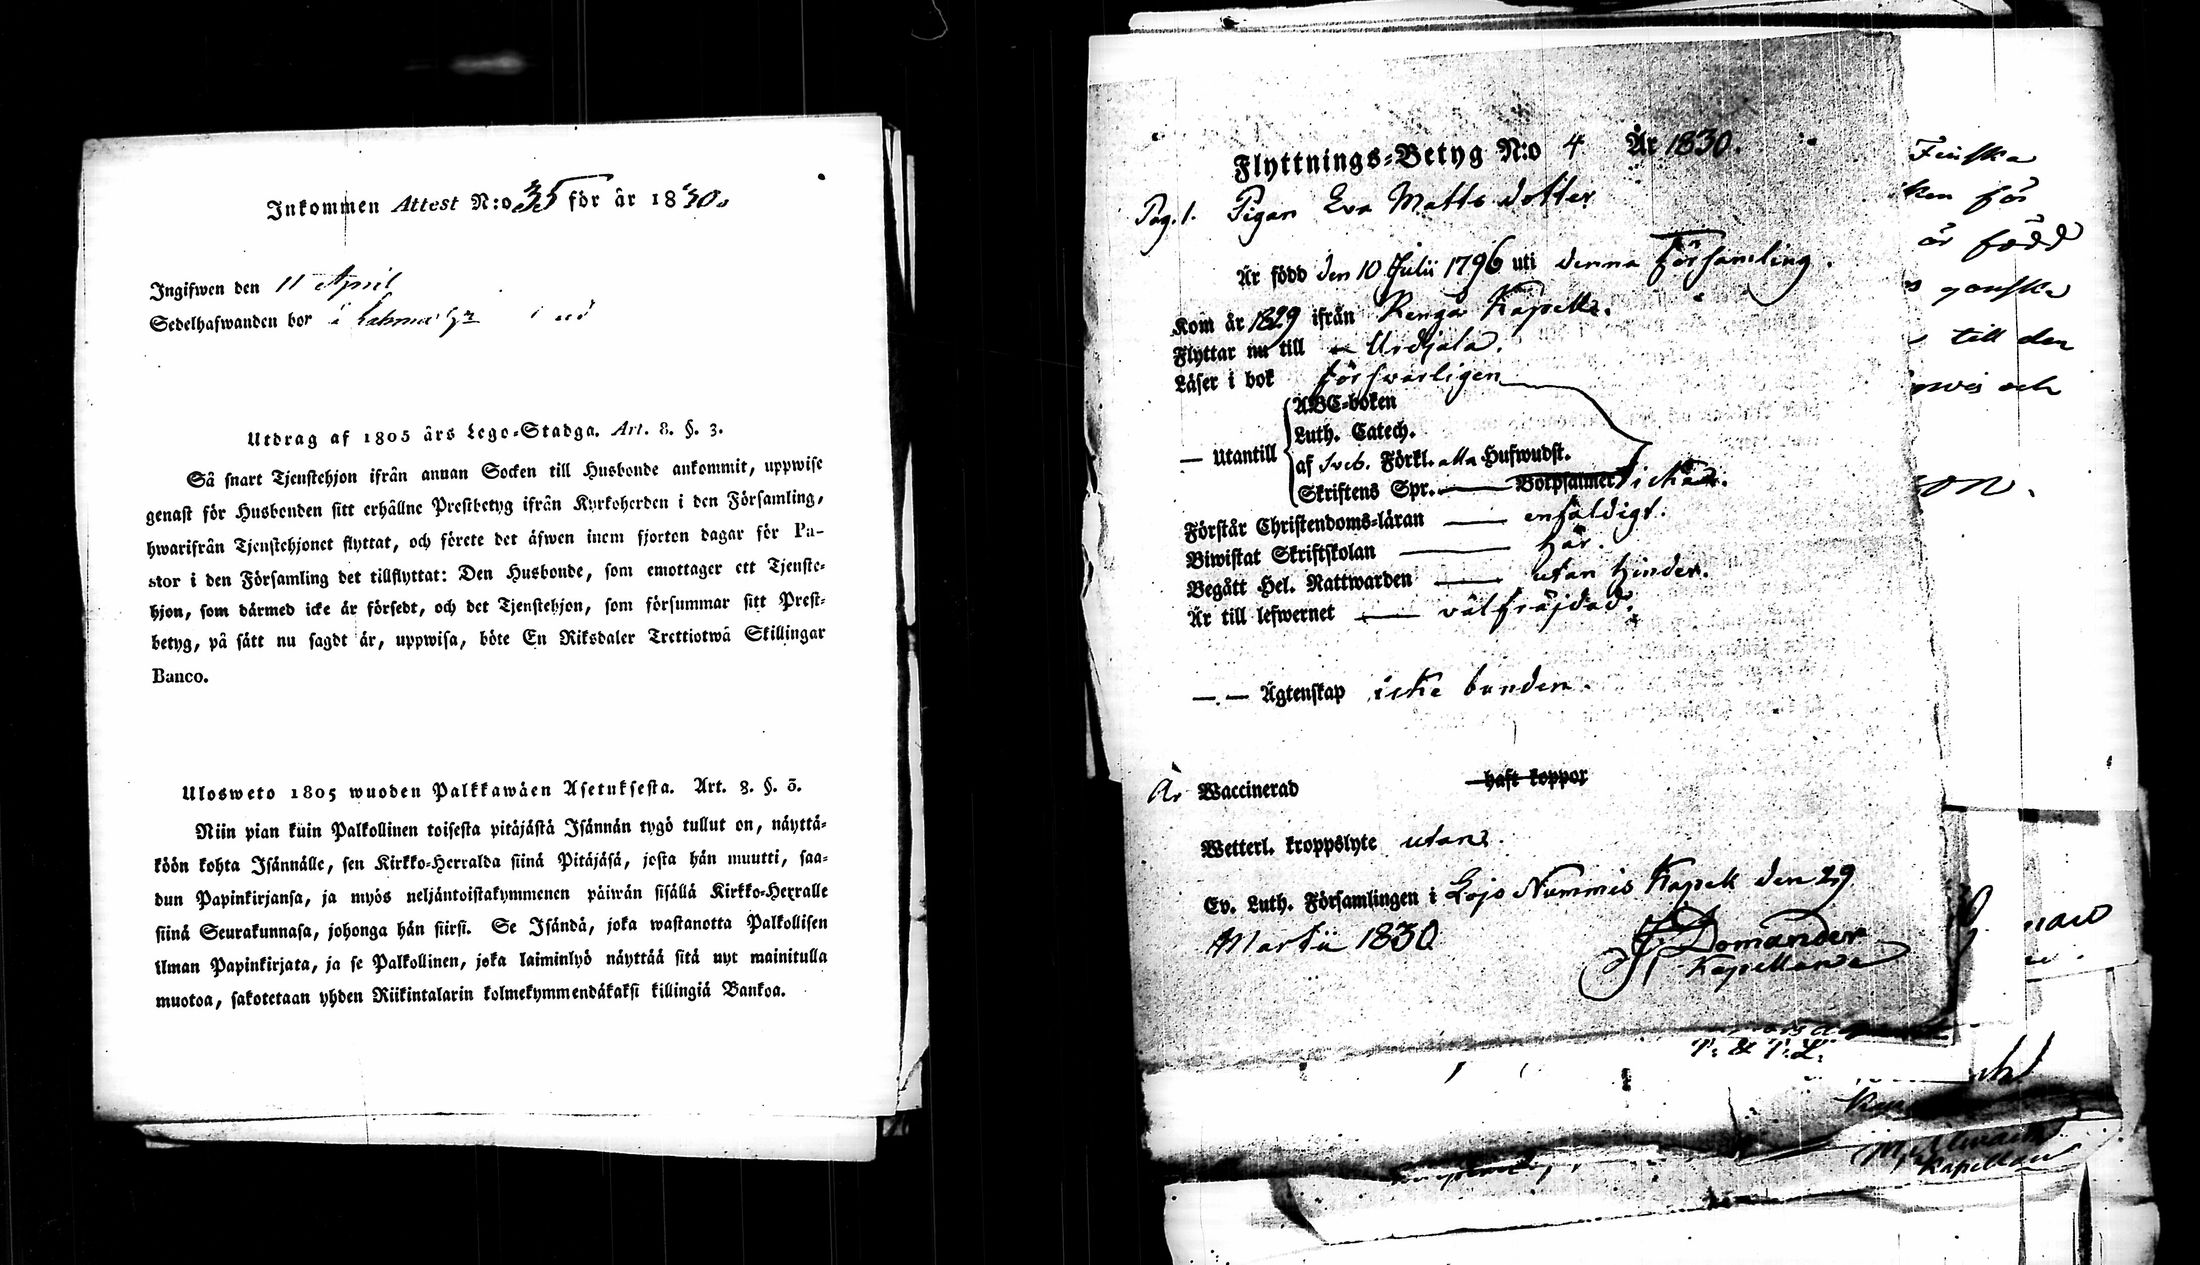 Inkommen Attest N:o 35 för år 1830.
Ingifwen den 11 April
Sedelhafwanden bor i
Utdrag af 1805 års Lego-Stadga. Art. 8. §. 3.
Så snart Tjenstehjon ifrån annan Socken till Husbonde ankommit, uppwise
genast för Husbonden sitt erhållne Prestbetyg ifrån Kyrkoherden i den Församling,
hwarifrån Tjenstehjonet flyttat, och förete det äfwen inom fjorton dagar för Pa-
stor i den Församling det tillflyttat: Den Husbonde, som emottager ett Tjenste-
hjon, som därmed icke är försedt, och det Tjenstehjon, som försummar sitt Prest-
betyg, på sätt nu sagdt är, uppwisa, böte En Riksdaler Trettiotwå Skillingar
Banco.
Ulosweto 1805 wuoden Palkkawäen Asetuksesta. Art. 8. §. 3.
Niin pian kuin Palkollinen toisesta pitäjästä Isännän tygö tullut on, näyttä-
köön kohta Isännälle, sen Kirkko-Herralda siinä Pitäjäsä, josta hän muutti, saa-
dun Papinkirjansa, ja myös neljäntoistakymmenen päiwän sisällä Kirkko-Herralle
siinä Seurakunnasa, johonga hän siirsi. Se Isändä, joka wastanotta Palkollisen
ilman Papinkirjata, ja se Palkollinen, joka laiminlyö näyttää sitä nyt mainitulla
muotoa, sakotetaan yhden Riikintalarin kolmekymmendäkaksi killingiä Bankoa.
Flyttnings-Betyg N:o 4 År 1830.
Pag. 1. Pigan Eva Matts dotter
Är född den 10 Julii 1796 uti denna Församling.
Kom år 1829 ifrån Kapell.
Flyttar nu till Urdjala.
Läser i bok försvarligen
ABC-boken
Luth. Catech.
— Utantill af Sveb. Förkl. alla Hufwudst.
Skriftens Spr. — Botpsalmer
Förstår Christendoms-läran — enfaldigt.
Biwistat Skriftskolan — här.
Begått Hel. Nattwarden — utan hinder.
Är till lefwernet — välfräjdad.
—.— Ägtenskap icke bunden.
Är Waccinerad haft koppor
Wetterl. kroppslyte utan.
Ev. Luth. Församlingen i Lojo Nummis Kapell den 29
Martii 1830
Domander
Kapellan
Finska
för
är född
ganska
till den
och
T. & T. L.
Kapellan